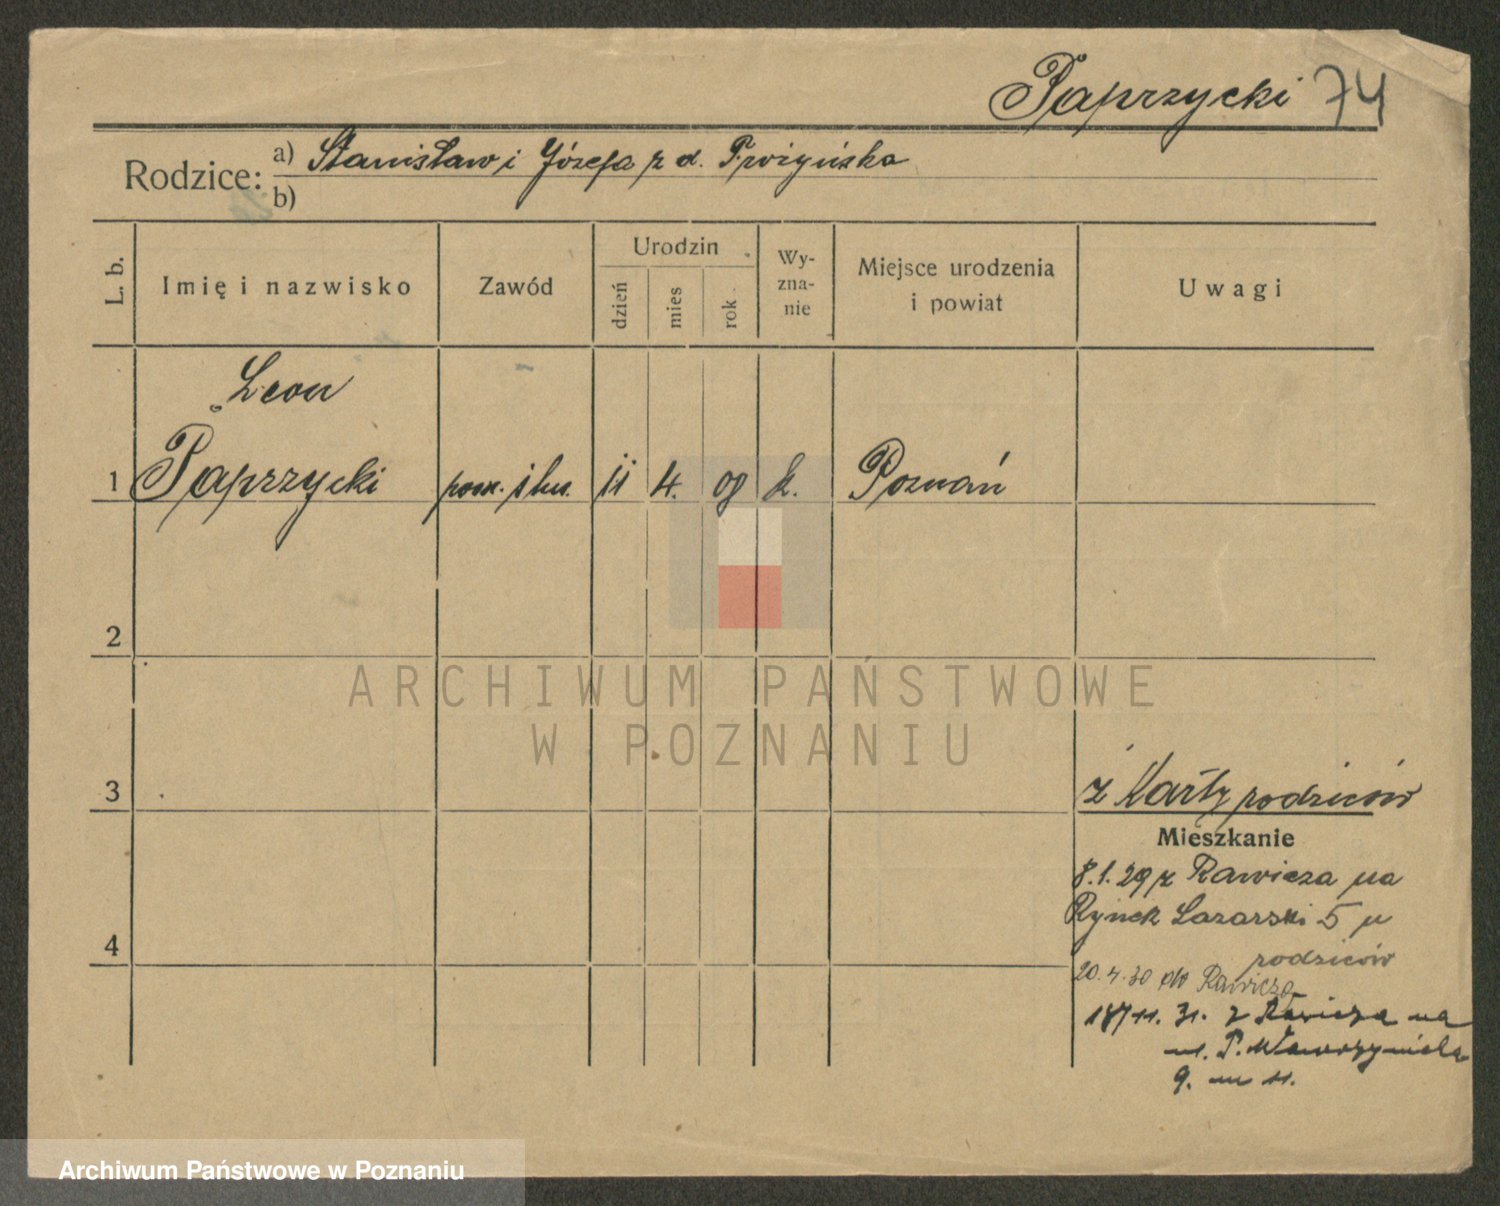 Paprzycki 74
Rodzice: a) Stanisław i Józefa z d.
b)
L. b. Imię i nazwisko Zawód Urodzin dzień mies rok Wy-zna-nie Miejsce urodzenia i powiat Uwagi
Leon
1 Paprzycki pom. ślus. 11 4. 09 k. Poznań
2
ARCHIWUM PAŃSTWOWE
W POZNANIU
3
z Karty rodziców
Mieszkanie
8.1.29 z Rawicza na
Rynek Łazarski 5 u
4
rodziców
20.4.30 do Rawicza
11. 31. z Rawicza na
ul. Wawrzyniaka
9. m 11.
Archiwum Państwowe w Poznaniu